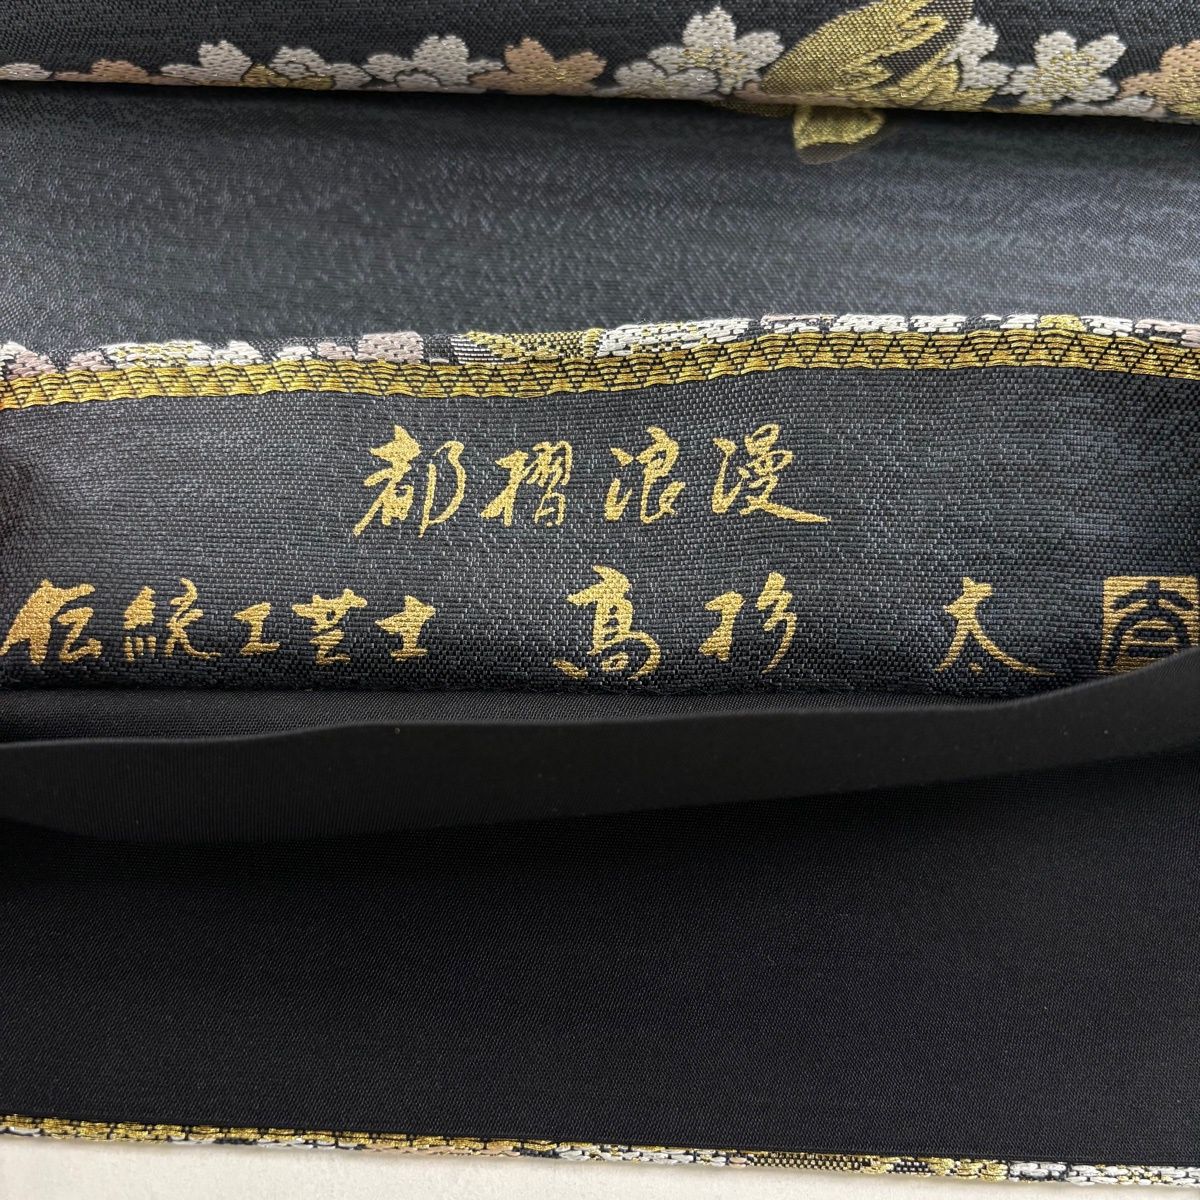 都摺浪漫
伝統工芸士 高杉 太